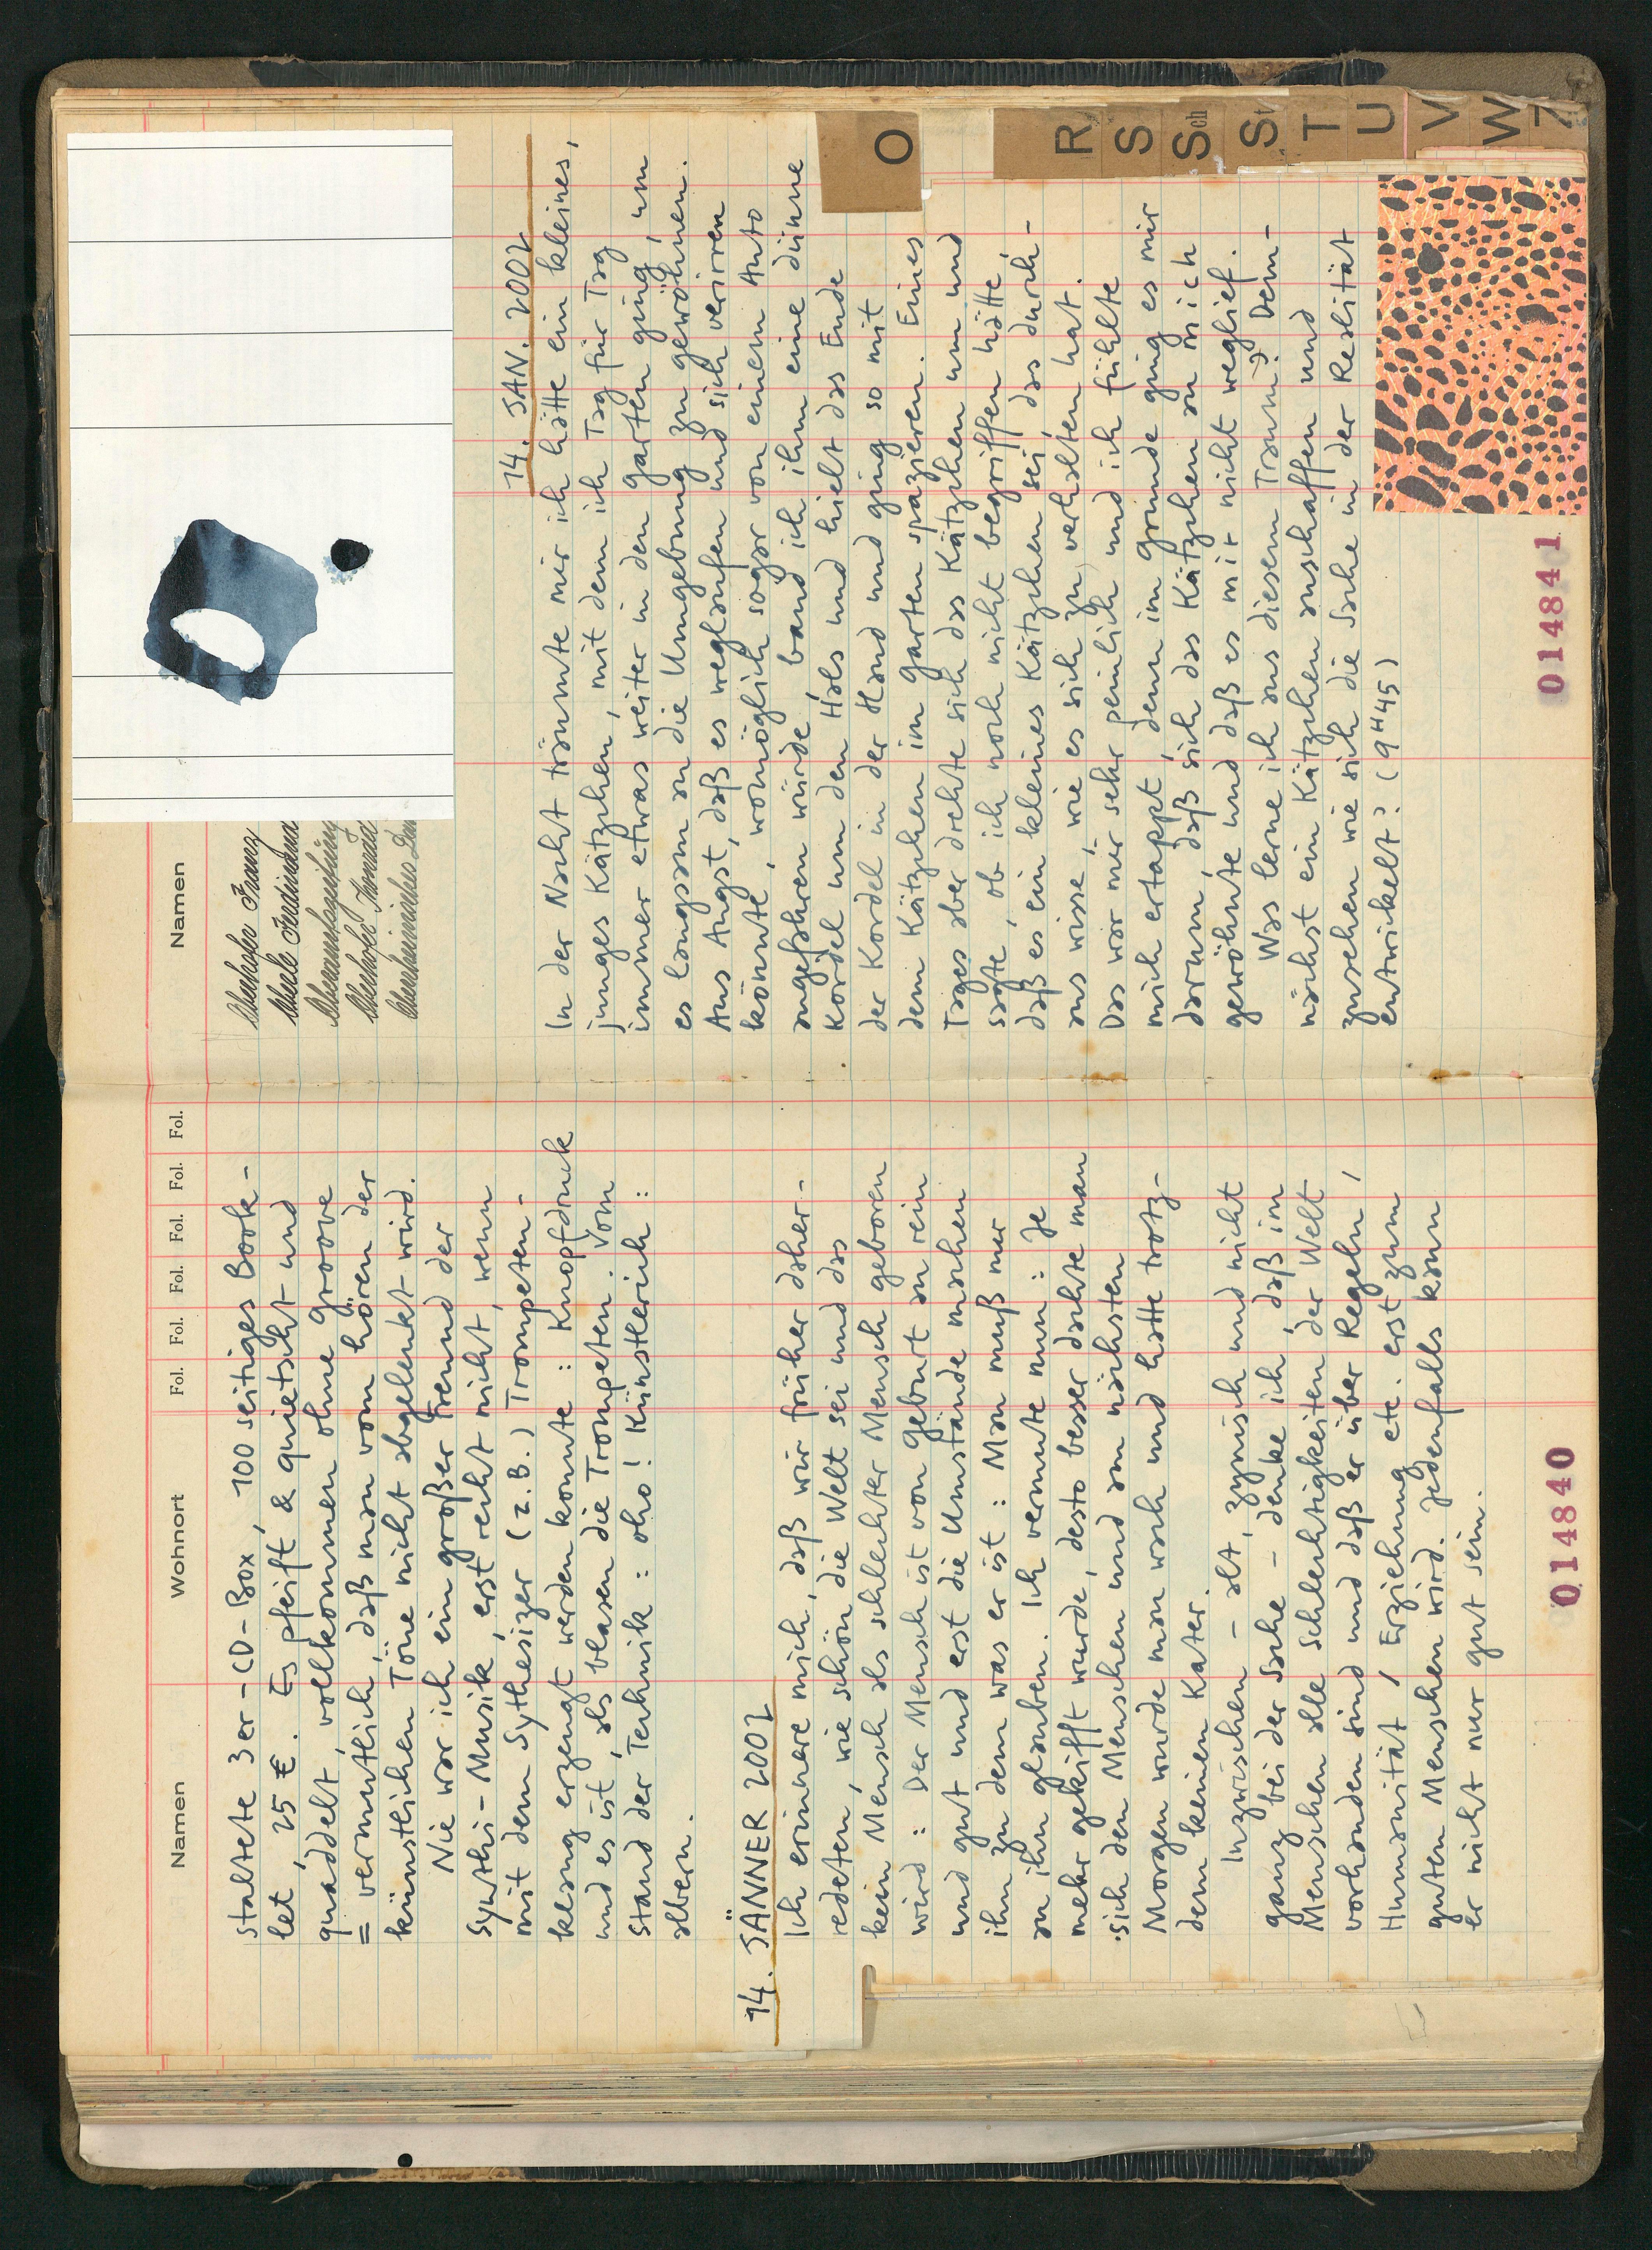 Namen Wohnort Fol. Fol. Fol. Fol. Fol. Fol.
staltete 3er-CD-Box, 100 seitiges Book-
let, 25 €. Es pfeift & quietscht und
quaddelt, vollkommen ohne Groove
= vermutlich, daß man vom hören der
künstlichen Töne nicht abgelenkt wird.
Nie war ich ein großer Freund der
Synthi-Musik, erst recht nicht, wenn
mit dem Sythesizer (z.B.) Trompeten-
klang erzeugt werden konnte: Knopfdruck
und es ist, als blasen die Trompeten. Vom
Stand der Technik: oho! Künstlerisch:
albern.
14. JÄNNER 2007
Ich erinnere mich, daß wir früher daher-
redeten, wie schön die Welt sei und das
kein Mensch als schlechter Mensch geboren
wird: Der Mensch ist von Geburt an rein
und gut und erst die Umstände machen
ihn zu dem was er ist: Man muß nur
an ihn glauben. Ich vermute nun: Je
mehr gekifft wurde, desto besser dachte man
sich den Menschen und am nächsten
Morgen wurde man wach und hatte trotz-
dem keinen Kater.
Inzwischen – alt, zynisch und nicht
ganz bei der Sache – denke ich, daß im
Menschen alle Schlechtigkeiten der Welt
vorhanden sind und daß er über Regeln,
Humanität, Erziehung etc. erst zum
guten Menschen wird. Jedenfalls kann
er nicht nur gut sein.
014840
Namen
Oberhofer Franz
Oberle Ferdinand
Oberhofer Konrad
14. JAN. 2007
In der Nacht träumte mir ich hätte ein kleines,
junges Kätzchen, mit dem ich Tag für Tag
immer etwas weiter in den Garten ging, um
es langsam an die Umgebung zu gewöhnen.
Aus Angst, daß es weglaufen und sich verirren
könnte, womöglich sogar von einem Auto
angefahren würde, band ich ihm eine dünne
Kordel um den Hals und hielt das Ende
der Kordel in der Hand und ging so mit
dem Kätzchen im Garten spazieren. Eines
Tages aber drehte sich das Kätzchen um und
sagte, ob ich noch nicht begriffen hätte,
daß es ein kleines Kätzchen sei, das durch-
aus wisse, wie es sich zu verhalten hat.
Das war mir sehr peinlich und ich fühlte
mich ertappt, denn im Grunde ging es mir
darum, daß sich das Kätzchen an mich
gewöhnte und daß es mir nicht weglief.
Was lerne ich aus diesem Traum? Dem-
nächst ein Kätzchen anschaffen und
zusehen wie sich die Sache in der Realität
entwickelt? (9H45)
014841
O
R
S
Sch
St
T
U
V
W
Z